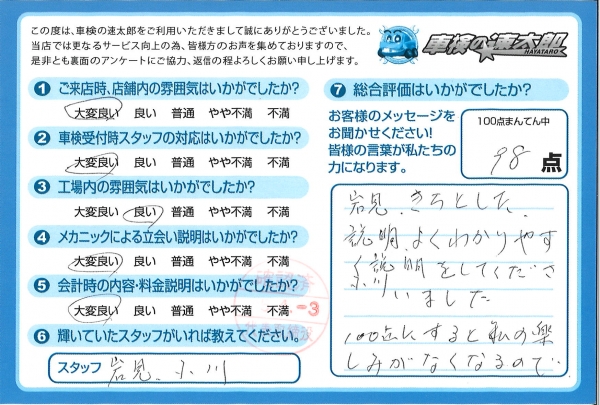 この度は、車検の速太郎をご利用いただきまして誠にありがとうございました。
当店では更なるサービス向上の為、皆様方のお声を集めておりますので、
是非とも裏面のアンケートにご協力、返信の程よろしくお願い申し上げます。
車検の速太郎
HAYATARO
1 ご来店時、店舗内の雰囲気はいかがでしたか?
大変良い 良い 普通 やや不満 不満
2 車検受付時スタッフの対応はいかがでしたか?
大変良い 良い 普通 やや不満 不満
3 工場内の雰囲気はいかがでしたか?
大変良い 良い 普通 やや不満 不満
4 メカニックによる立会い説明はいかがでしたか?
大変良い 良い 普通 やや不満 不満
5 会計時の内容・料金説明はいかがでしたか?
大変良い 良い 普通 やや不満 不満
6 輝いていたスタッフがいれば教えてください。
スタッフ 岩見、小川
-3
7 総合評価はいかがでしたか?
お客様のメッセージを
お聞かせください!
皆様の言葉が私たちの
力になります。
100点まんてん中
98 点
岩見、きちとした、
説明、よくわかりやす
く説明をしてくださ
小川
いました
100点にすると私の楽
しみがなくなるので